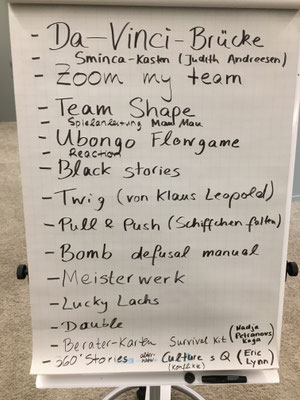 - Da-Vinci-Brücke
- Sminca-Kasten (Judith Andreesen)
- Zoom my team
- Team Shape
Spielanleitung Mau Mau
- Ubongo Flowgame
- Reaction
- Black stories
- Twig (von Klaus Leopold)
- Pull & Push (Schiffchen falten)
- Bomb defusal manual
- Meisterwerk
- Lucky Lachs
- Double
- Berater-Karten Survival Kit (Nadja Petranovs Koga)
- 360° Stories Culture s Q (Eric Lynn)
(Konflikte)